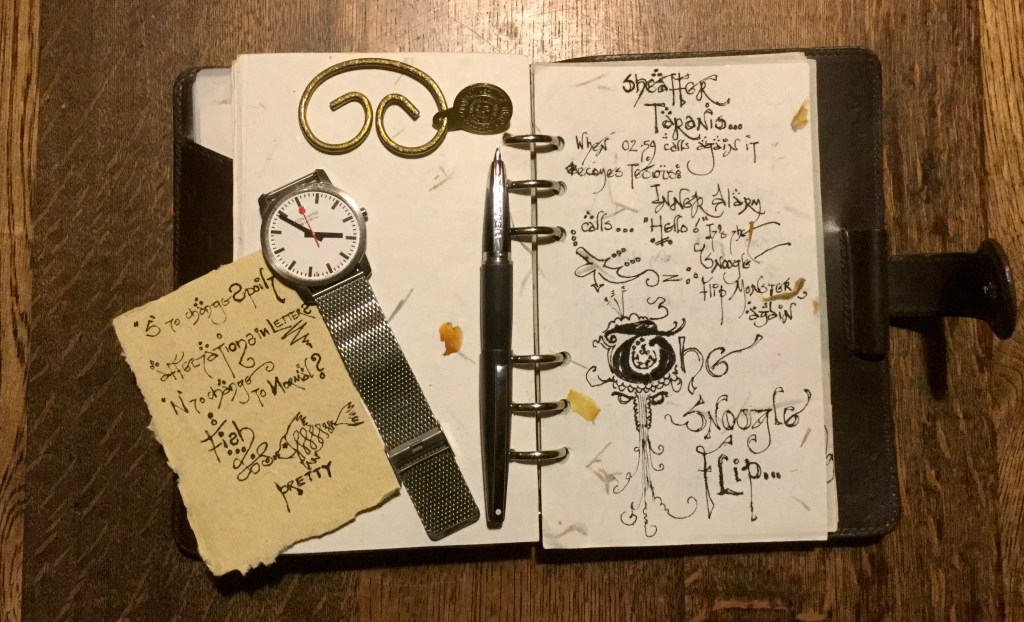 Sheaffer
Taranis...
When 02.59 calls again it
Becomes Tedious.
Inner Alarm
calls... "Hello!" It's the
Snoogle
Flip Monster
again
The
Snoogle
Flip...
"S to change
affectations in Letters
"N" to change to Normal?
Fish
PRETTY